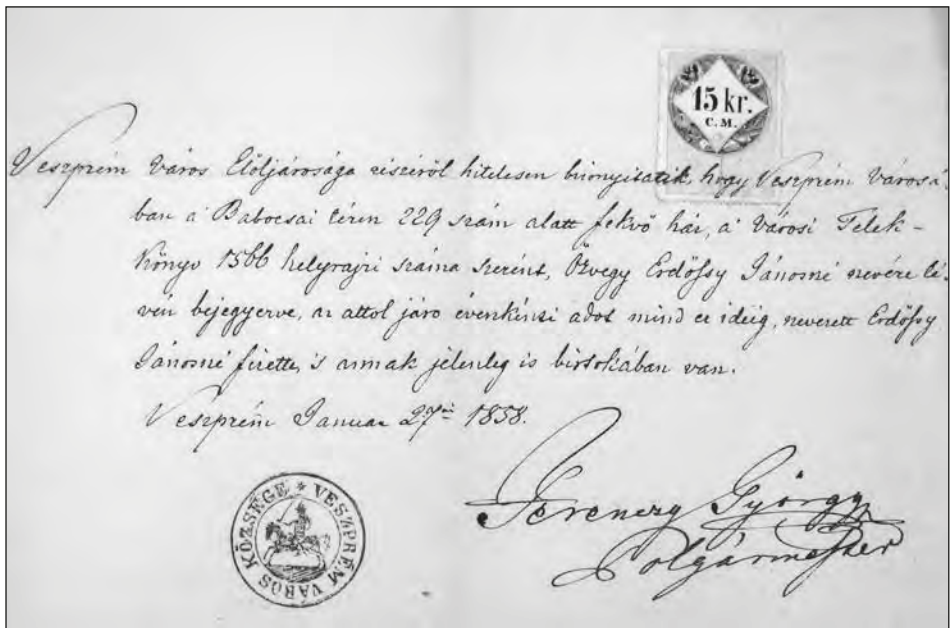 15 kr.
C. M.
Veszprém Város Elöljárosága részéről hitelesen bizonyitatik, hogy Veszprém Városá
ban a' Babocsai téren 229 szám alatt fekvő ház, a' Városi Telek-
könyv 1566 helyrajzi száma szerént, Özvegy Erdőssy Jánosné nevére lé-
vén bejegyezve, az attol járó évenkinti adot mind ez ideig, nevezett Erdőssy
Jánosné fizette, 's annak jelenleg is birtokában van.
Veszprém Januar 27én 1858.
Ferenczy György
Polgármester
VESZPRÉM VÁROS KÖZSÉGE *